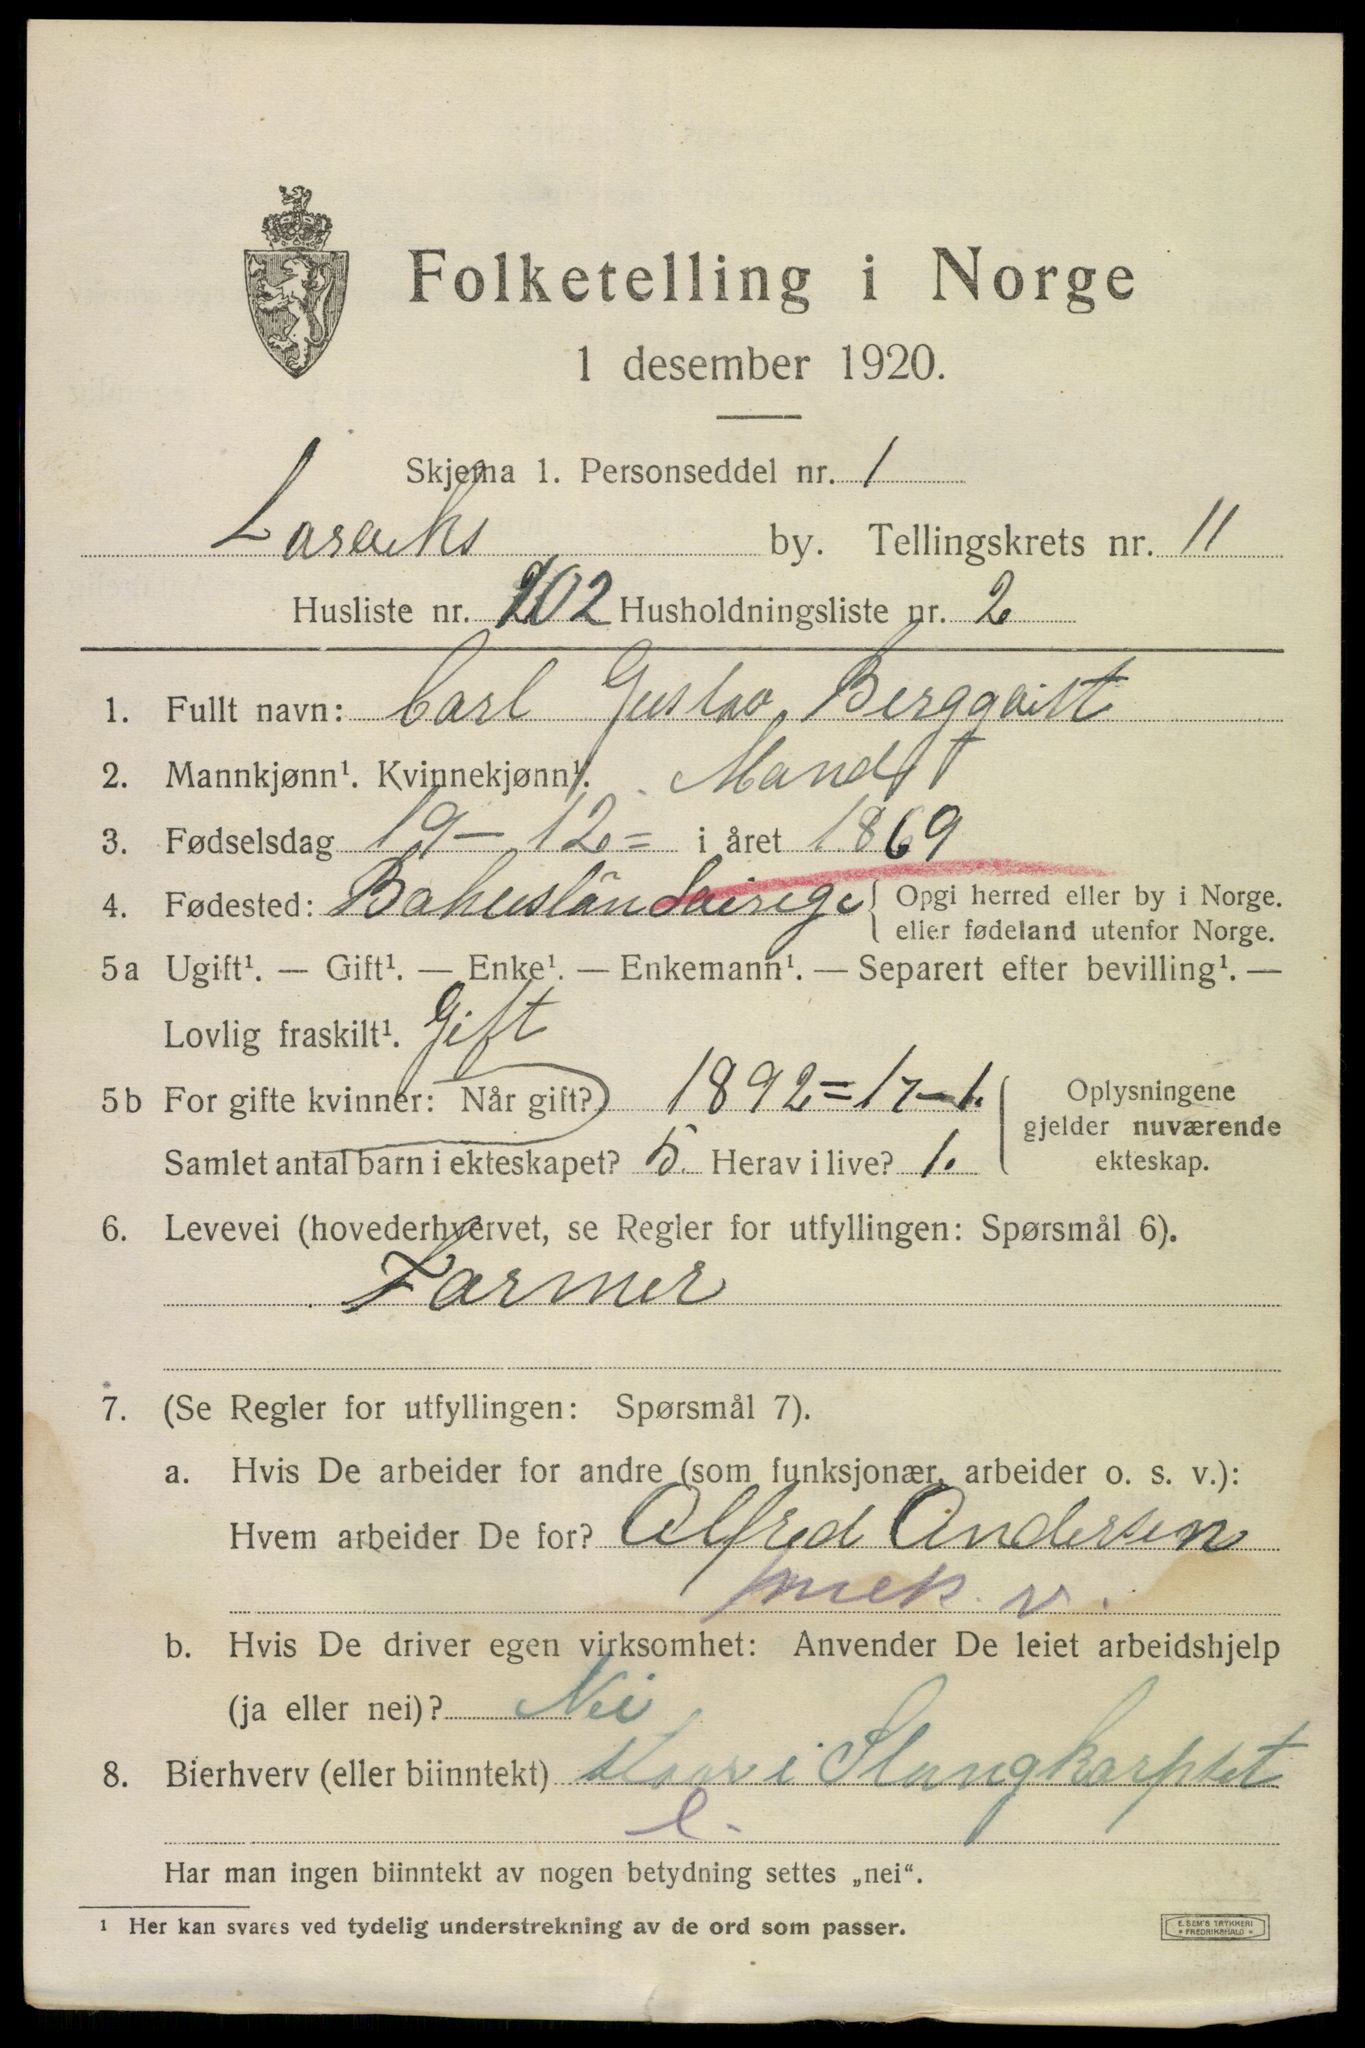 Folketelling i Norge
1 desember 1920.
Skjema 1. Personseddel nr. 1
Larviks by. Tellingskrets nr. 11
Husliste nr. 202 Husholdningsliste nr. 2
1. Fullt navn: Carl Gustav Bergqvist
2. Mannkjønn¹. Kvinnekjønn¹. Mand
3. Fødselsdag 19–12= i året 1869
4. Fødested: Bahuslän Sverige { Opgi herred eller by i Norge.
eller fødeland utenfor Norge.
5a Ugift¹. — Gift¹. — Enke¹. — Enkemann¹. — Separert efter bevilling¹. —
Lovlig fraskilt¹. Gift
5b For gifte kvinner: Når gift? 1892=17–1. Oplysningene
gjelder nuværende
Samlet antal barn i ekteskapet? 5. Herav i live? 1. ekteskap.
6. Levevei (hovederhvervet, se Regler for utfyllingen: Spørsmål 6).
Farmer
7. (Se Regler for utfyllingen: Spørsmål 7).
a. Hvis De arbeider for andre (som funksjonær, arbeider o. s. v.):
Hvem arbeider De for? Alfred Andersen
mek. v.
b. Hvis De driver egen virksomhet: Anvender De leiet arbeidshjelp
(ja eller nei)? Nei
8. Bierhverv (eller biinntekt) i Slangkorpset
Har man ingen biinntekt av nogen betydning settes „nei“.
¹ Her kan svares ved tydelig understrekning av de ord som passer.
E. SEM'S TRYKKERI
* FREDRIKSHALD *